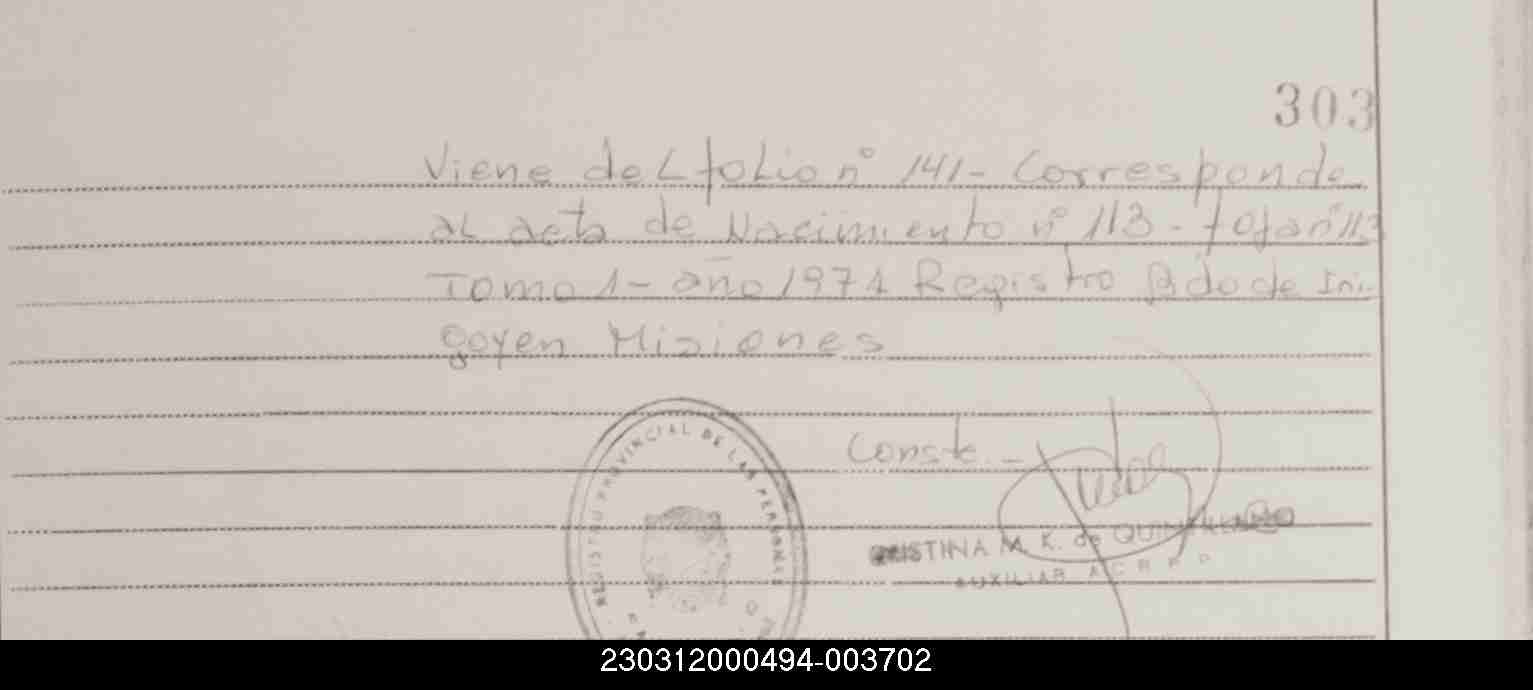 303
Viene del folio nº 141- Corresponde
al acta de Nacimiento nº 113 - foja nº 113
Tomo 1- año 1971 Registro Bdo de Iri-
goyen Misiones
Conste. -
REGISTRO PROVINCIAL DE LAS PERSONAS
CRISTINA M. K. de
AUXILIAR A C R P P
230312000494-003702